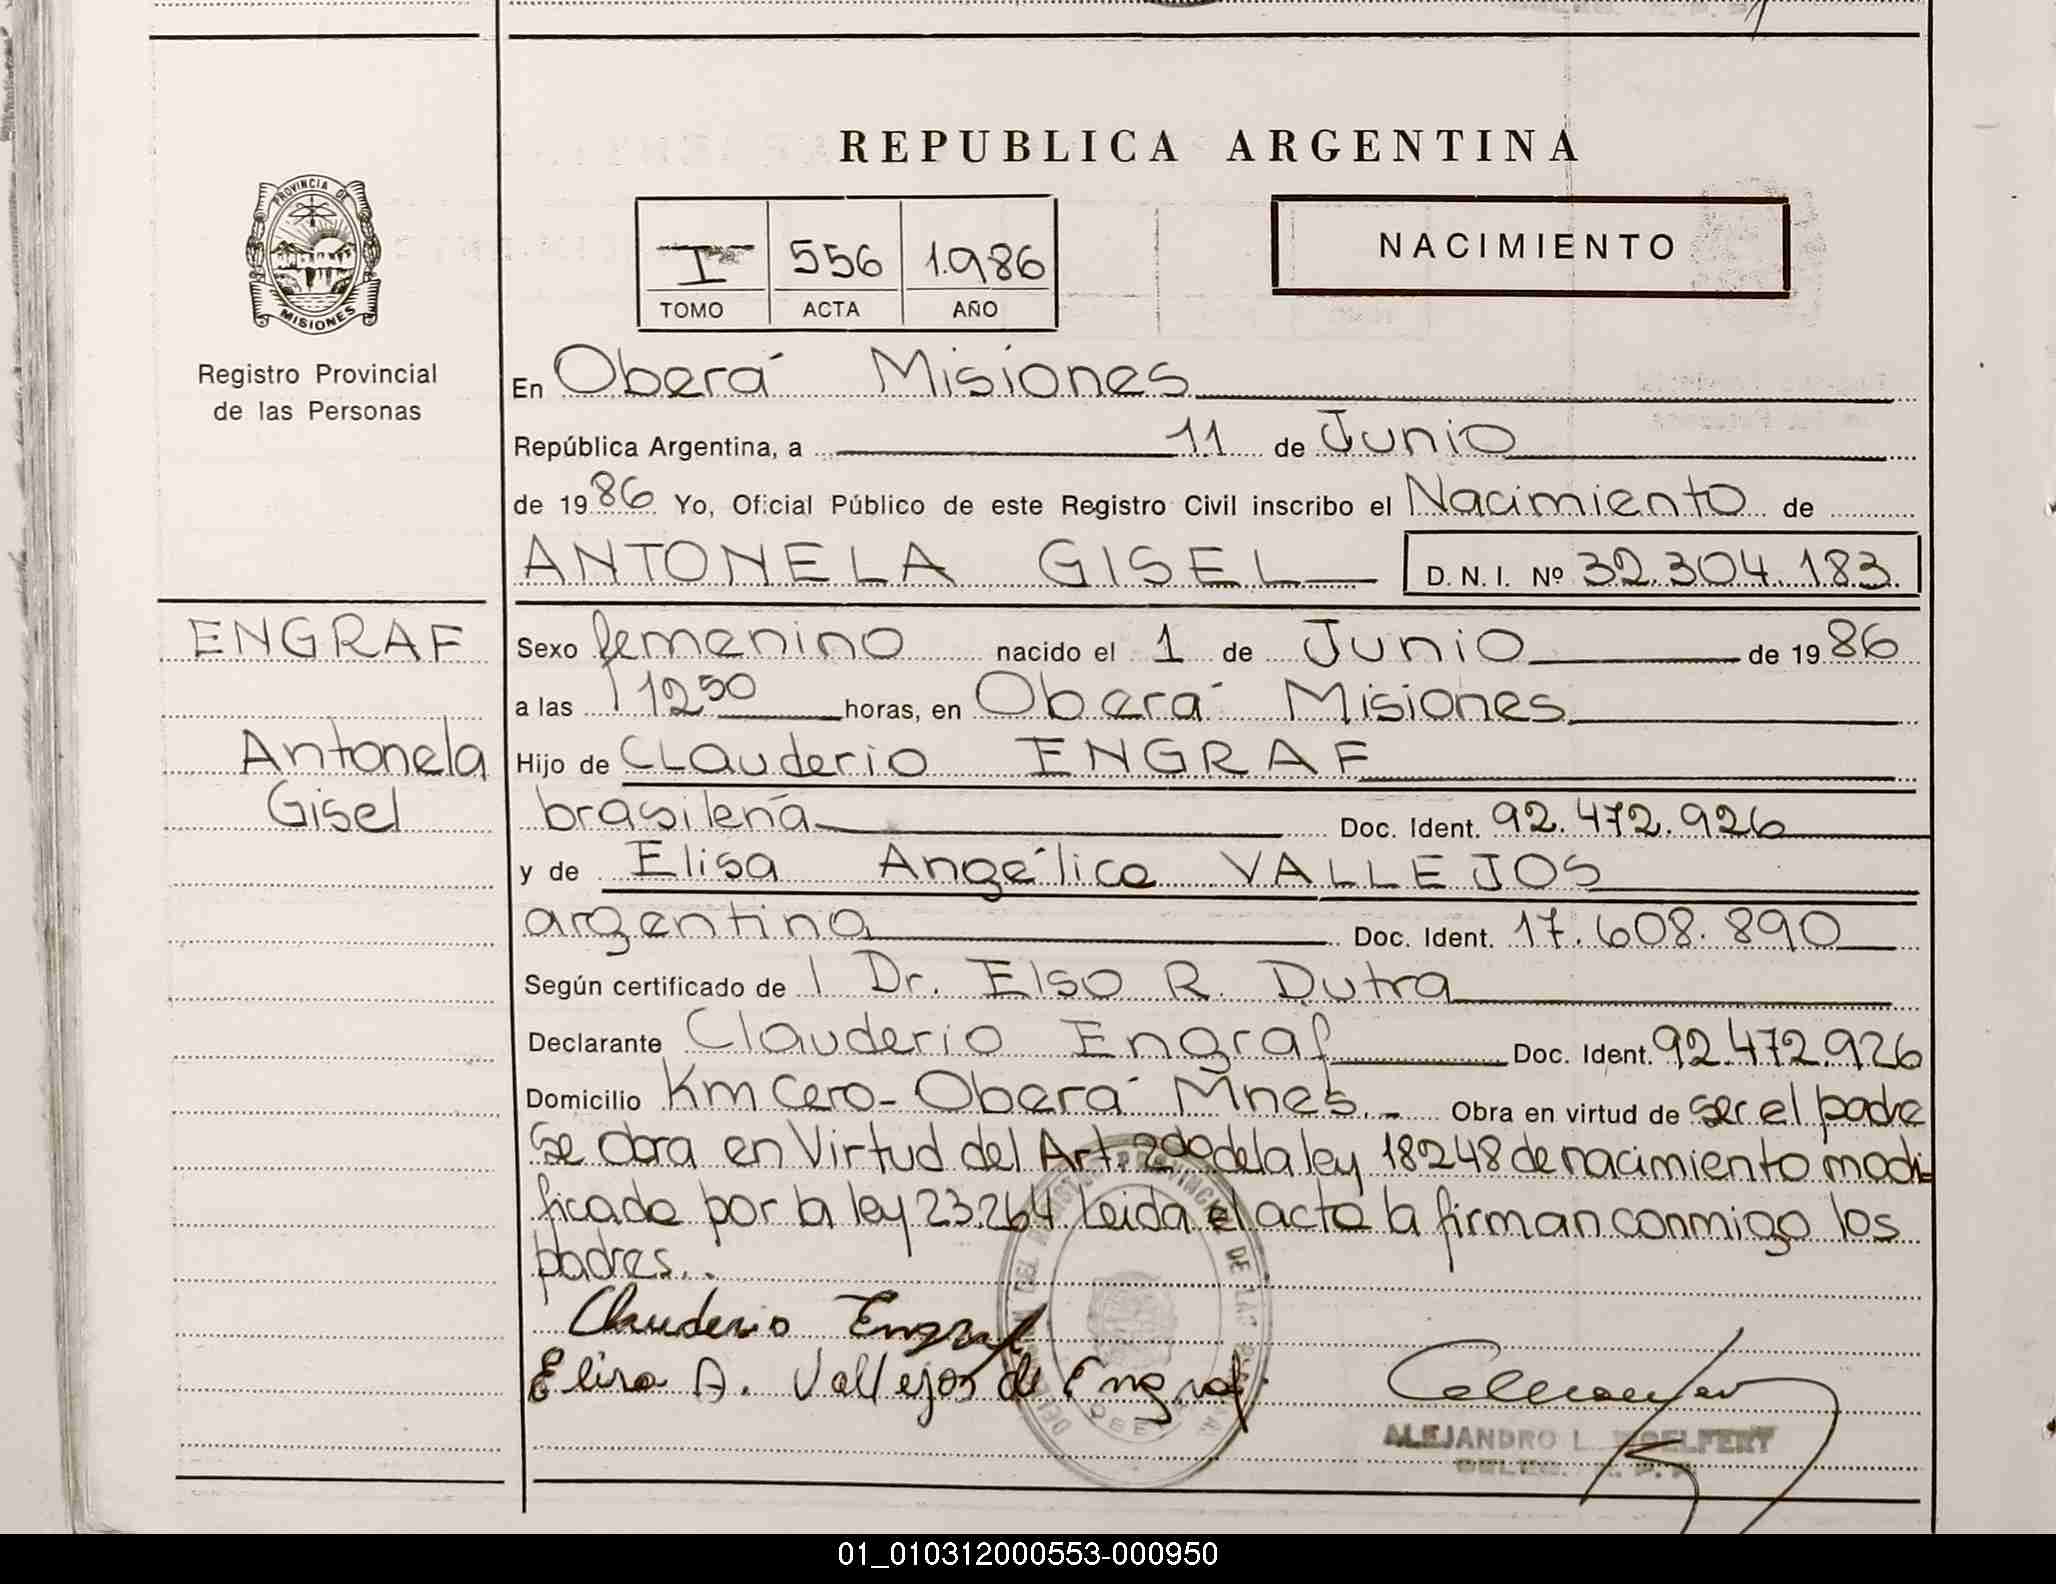 REPUBLICA ARGENTINA
PROVINCIA DE
MISIONES
Registro Provincial
de las Personas
I 556 1.986
TOMO ACTA AÑO
NACIMIENTO
En Oberá Misiones
República Argentina, a 11 de Junio
de 1986 Yo, Oficial Público de este Registro Civil inscribo el Nacimiento de
ANTONELA GISEL D. N. I. Nº 32.304.183.
ENGRAF
Antonela
Gisel
Sexo femenino nacido el 1 de Junio de 1986
a las 12 50 horas, en Oberá Misiones
Hijo de CLauderio ENGRAF
brasilena Doc. Ident. 92.472.926
y de Elisa Angélica VALLEJOS
argentina Doc. Ident. 17.608.890
Según certificado de l Dr. Elso R. Dutra
Declarante Clauderio Engraf Doc. Ident. 92.472.926
Domicilio Km Cero - Oberá Mnes. - Obra en virtud de ser el padre
Se obra en Virtud del Art. 2do de la ley 18248 de nacimiento modi=
ficado por la ley 23.264 Leida el acta la firman conmigo los
padres..
Clauderio Engraf
Elisa A. Vallejos de Engraf.
ALEJANDRO L.
01_010312000553-000950